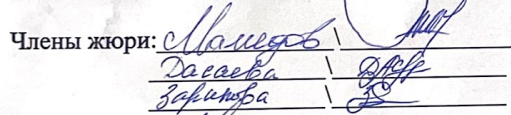 Члены жюри: Мамедов \
Дасаева \
Зарипова \